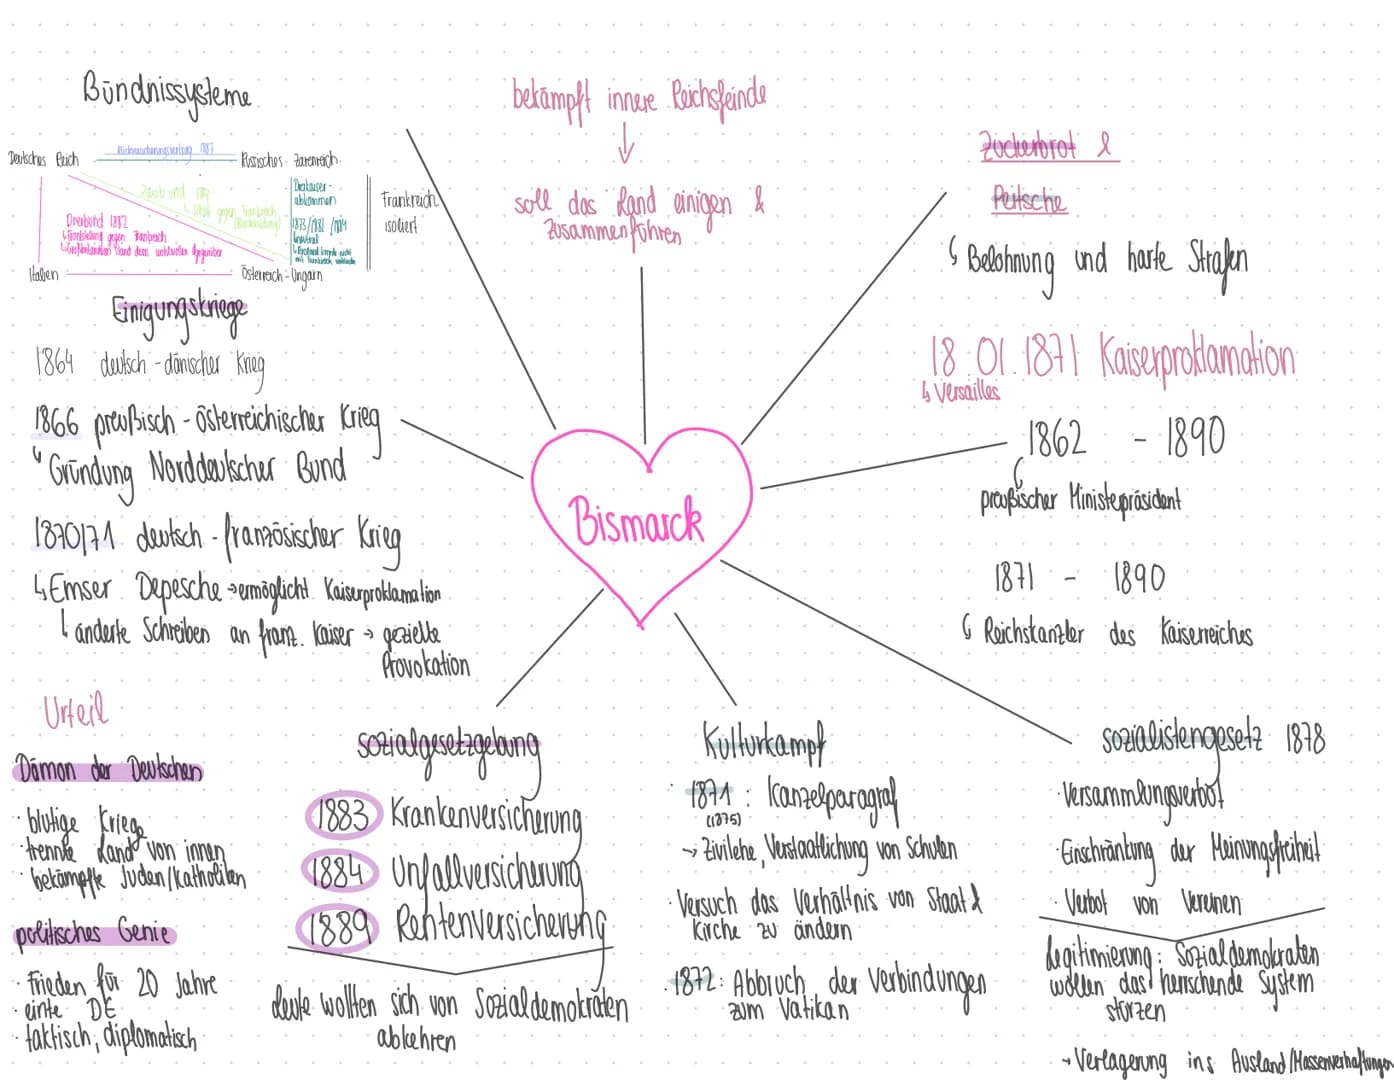 Bündnissysteme
Deutsches Reich
Rückversicherungsvertrag 1887
Russisches Zarenreich
Zweibund 1879
gegen Frankreich
Dreibund 1882
↳ Frontstellung gegen Frankreich
Dreikaiser-
abkommen
1873/1881/1884
neutral
Frankreich
isoliert
Italien
Österreich-Ungarn
Einigungskriege
1864 deutsch-dänischer Krieg
1866 preußisch-österreichischer Krieg
↳ Gründung Norddeutscher Bund
1870/71 deutsch-französischer Krieg
↳ Emser Depesche → ermöglicht Kaiserproklamation
↳ änderte Schreiben an franz. Kaiser → gezielte
Provokation
bekämpft innere Reichsfeinde
↓
soll das Land einigen &
zusammenführen
Zuckerbrot &
Peitsche
↳ Belohnung und harte Strafen
18.01.1871 Kaiserproklamation
↳ Versailles
1862 - 1890
preußischer Ministerpräsident
1871 - 1890
↳ Reichskanzler des Kaiserreiches
Bismarck
Urteil
Dämon der Deutschen
· blutige Kriege
· trennte Land von innen
· bekämpfte Juden/Katholiken
politisches Genie
· Frieden für 20 Jahre
· einte DE
· taktisch, diplomatisch
sozialgesetzgebung
1883 Krankenversicherung
1884 Unfallversicherung
1889 Rentenversicherung
Leute wollten sich von Sozialdemokraten
abkehren
Kulturkampf
· 1871 : Kanzelparagraf
(1875)
→ Zivilehe, Verstaatlichung von Schulen
· Versuch das Verhältnis von Staat &
Kirche zu ändern
· 1872: Abbruch der Verbindungen
zum Vatikan
sozialistengesetz 1878
· Versammlungsverbot
· Einschränkung der Meinungsfreiheit
· Verbot von Vereinen
Legitimierung: Sozialdemokraten
wollen das herrschende System
stürzen
→ Verlagerung ins Ausland/Massenverhaftungen